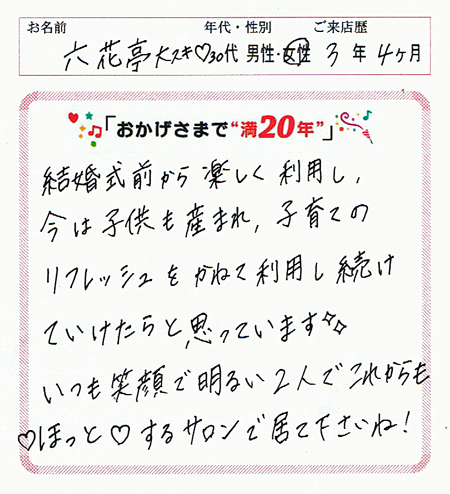 お名前 年代・性別 ご来店歴
六花亭大スキ♡30代 男性・女性 3年4ヶ月
「おかげさまで“満20年”」
結婚式前から楽しく利用し,
今は子供も産まれ,子育ての
リフレッシュをかねて利用し続け
ていけたらと,思っています✧✧
いつも笑顔で明るい2人でこれからも
♡ほっと♡するサロンで居て下さいね!